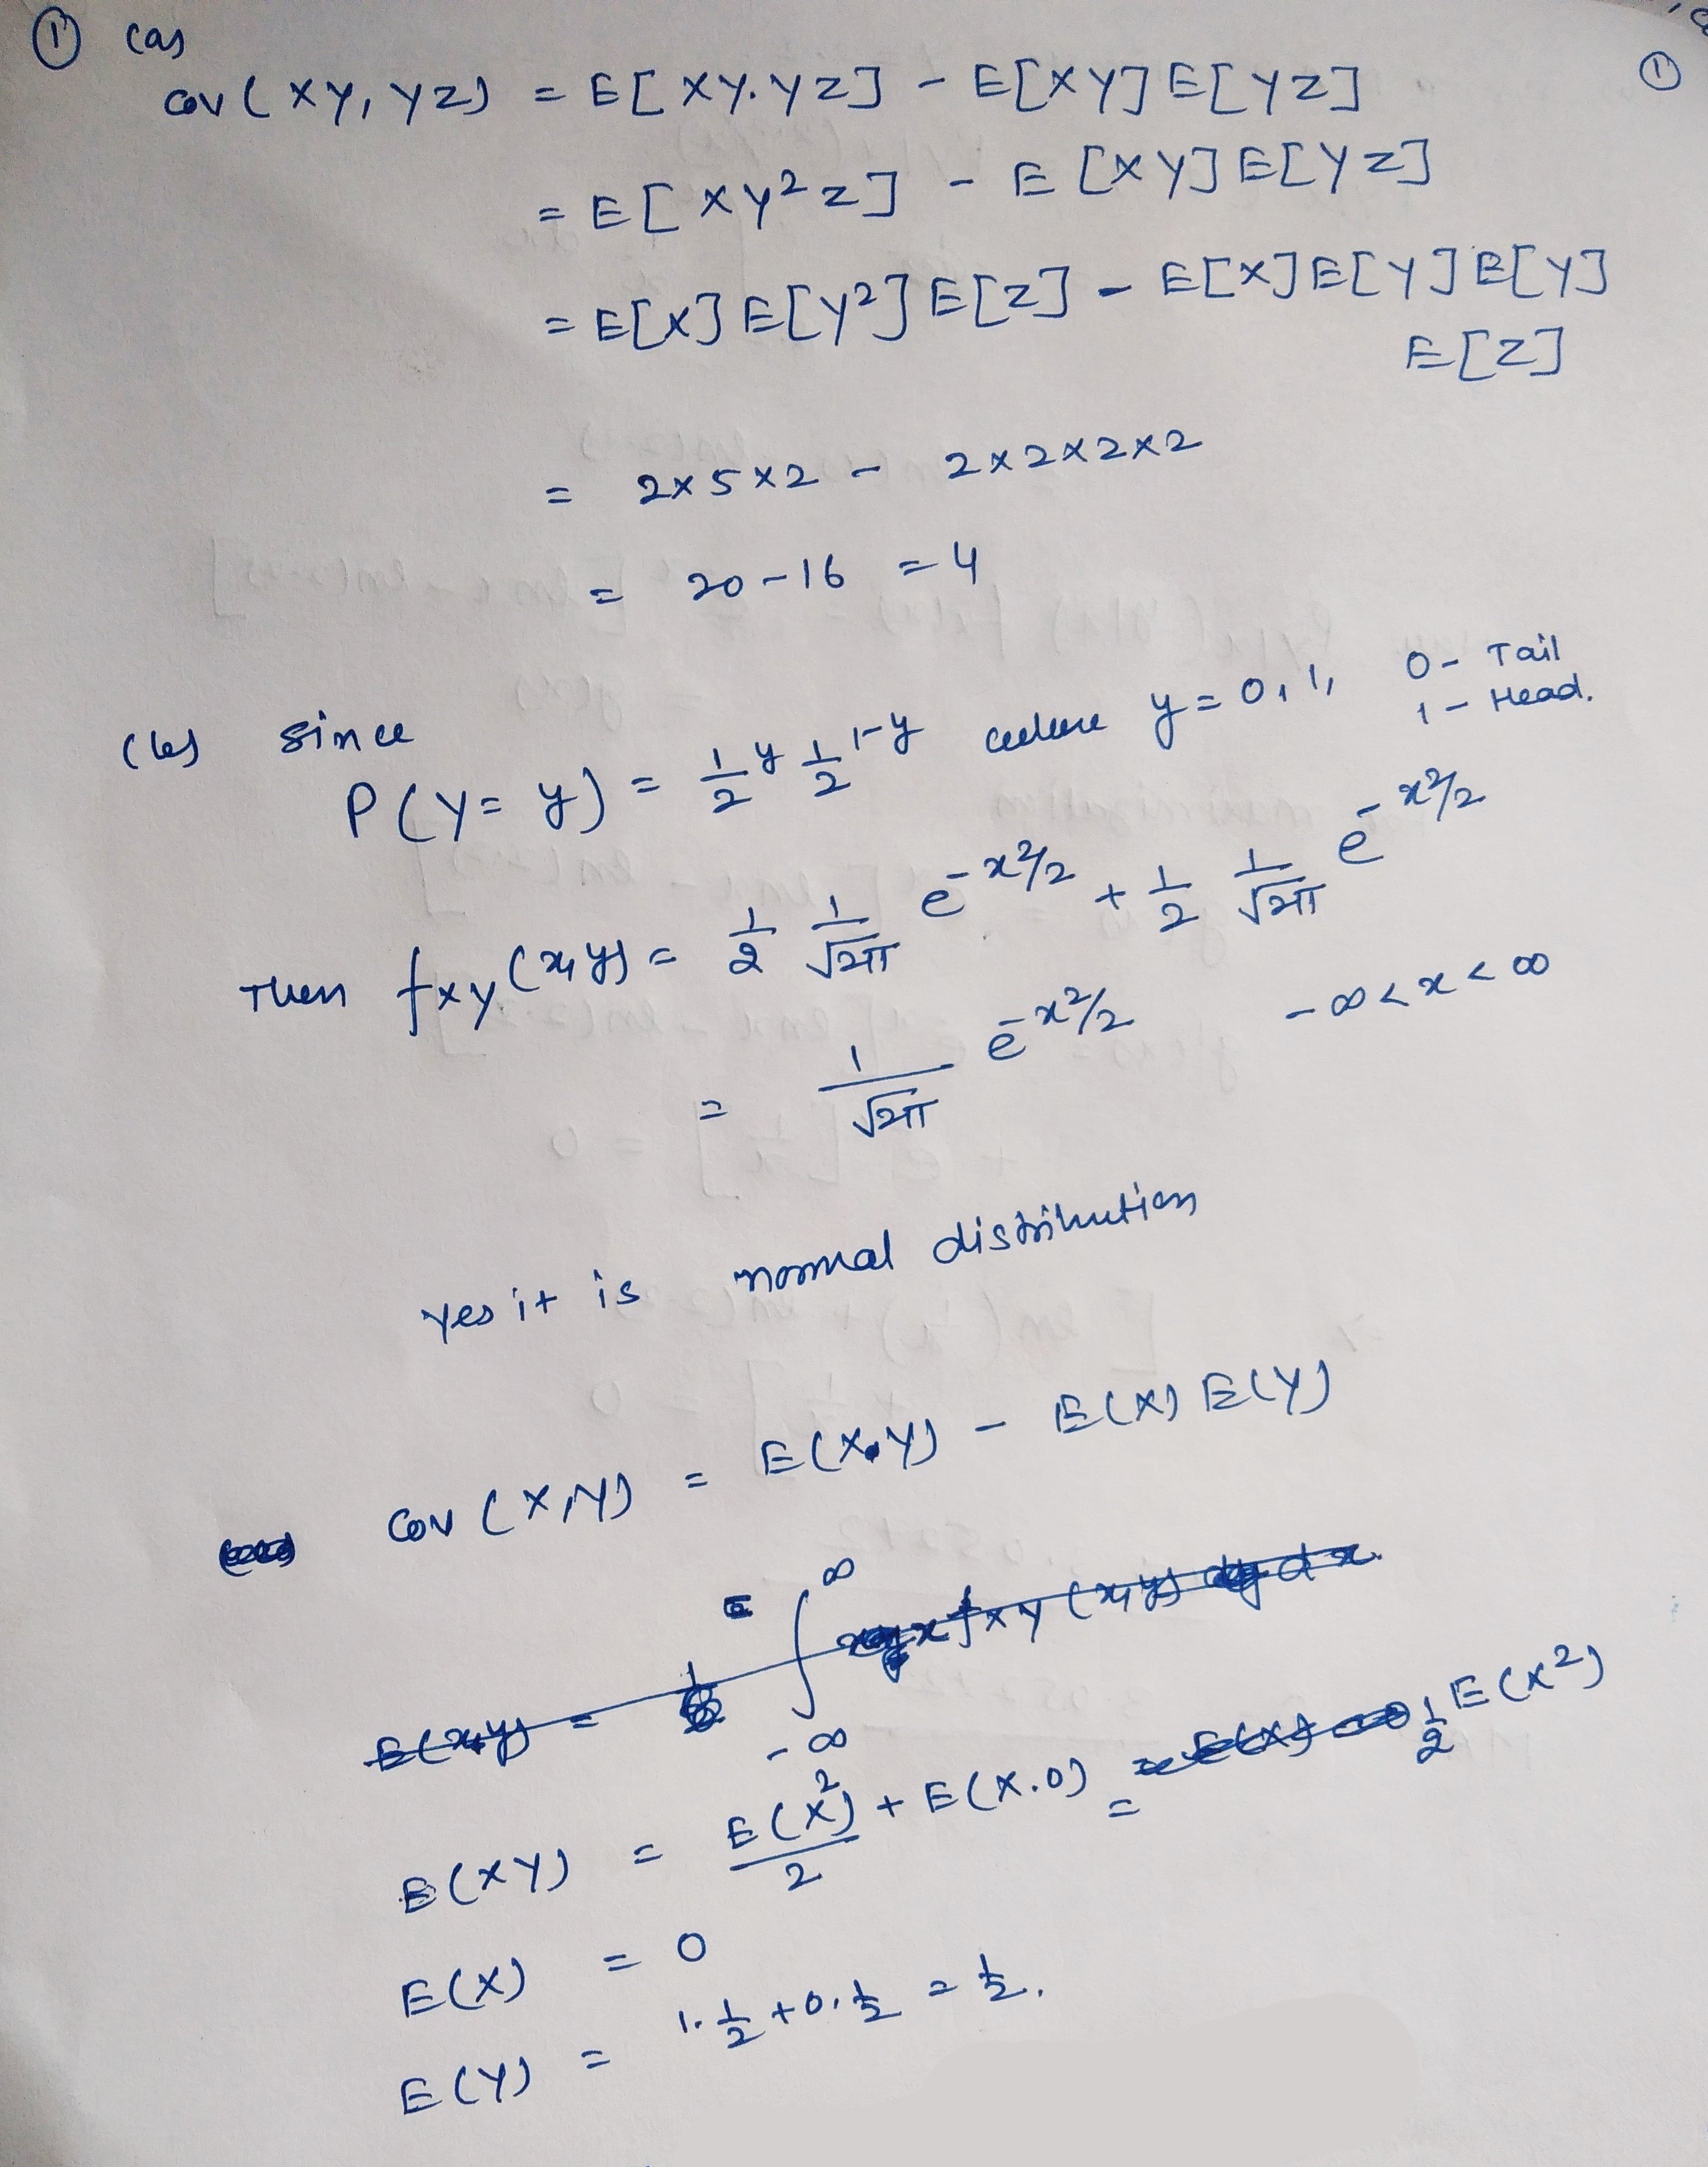 ① (a)
①
cov(XY, YZ) = E[XY.YZ] - E[XY]E[YZ]
= E[XY²Z] - E[XY]E[YZ]
= E[X]E[Y²]E[Z] - E[X]E[Y]E[Y]
E[Z]
= 2×5×2 - 2×2×2×2
= 20-16 = 4
(b) since
P(Y=y) = 1/2^y 1/2^(1-y) where y=0,1, 0- Tail
1- Head.
Then fxy(x,y) = 1/2 1/√2π e^(-x²/2) + 1/2 1/√2π e^(-x²/2)
= 1/√2π e^(-x²/2) -∞<x<∞
Yes it is normal distribution
Cov(X,Y) = E(X.Y) - E(X)E(Y)
E(x,y) = ∫ ∞ -∞ x fxy(x,y) dx.
E(XY) = E(X²)/2 + E(X.0) = 1/2 E(X²)
E(X) = 0
E(Y) = 1.1/2 + 0.1/2 = 1/2.